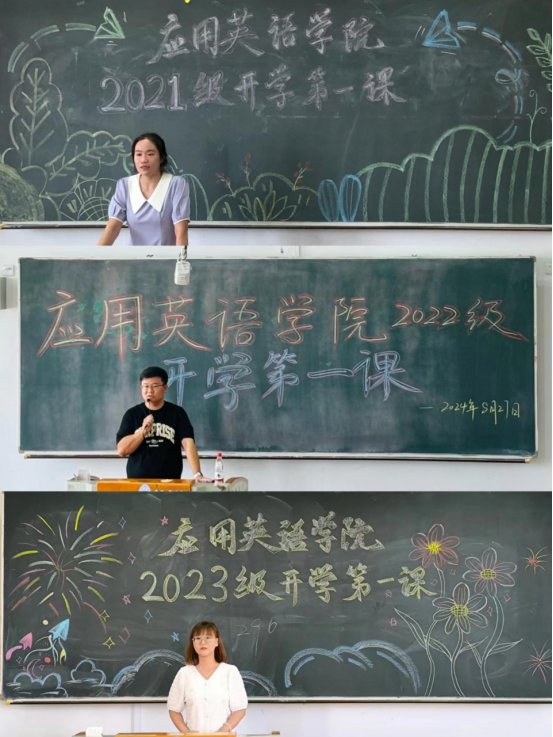 应用英语学院
2021级开学第一课
应用英语学院2022级
开学第一课
—2024年8月27日
应用英语学院
2023级开学第一课
296